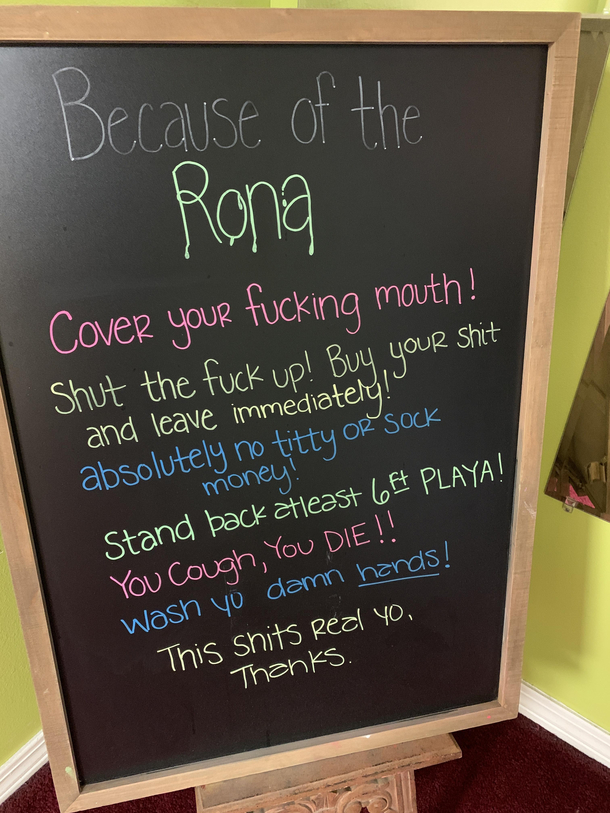 Because of the
Rona
Cover your fucking mouth!
Shut the fuck up! Buy your shit
and leave immediately!
absolutely no titty or sock
money!
Stand back atleast 6ft PLAYA!
You Cough, You DIE!!
Wash yo damn hands!
This shits Real yo.
Thanks.